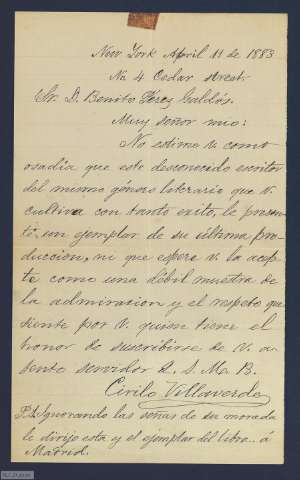 New York April 11 de 1883
No 4 Cedar street
Sr. D. Benito Pérez Galdós.
Muy señor mio:
No estime V. como
osadía que este desconocido escritor
del mismo género literario que V.
cultiva con tanto exito, le presen-
te un ejemplar de su última pro-
duccion, ni que espere V. la acep-
te como una débil muestra de
la admiracion y el respeto que
siente por V. quien tiene el
honor de suscribirse de V. a-
tento servidor Q. S. M. B.
Cirilo Villaverde
P.D. Ignorando las señas de su morada
le dirijo esta y el ejemplar del libro á
Madrid.